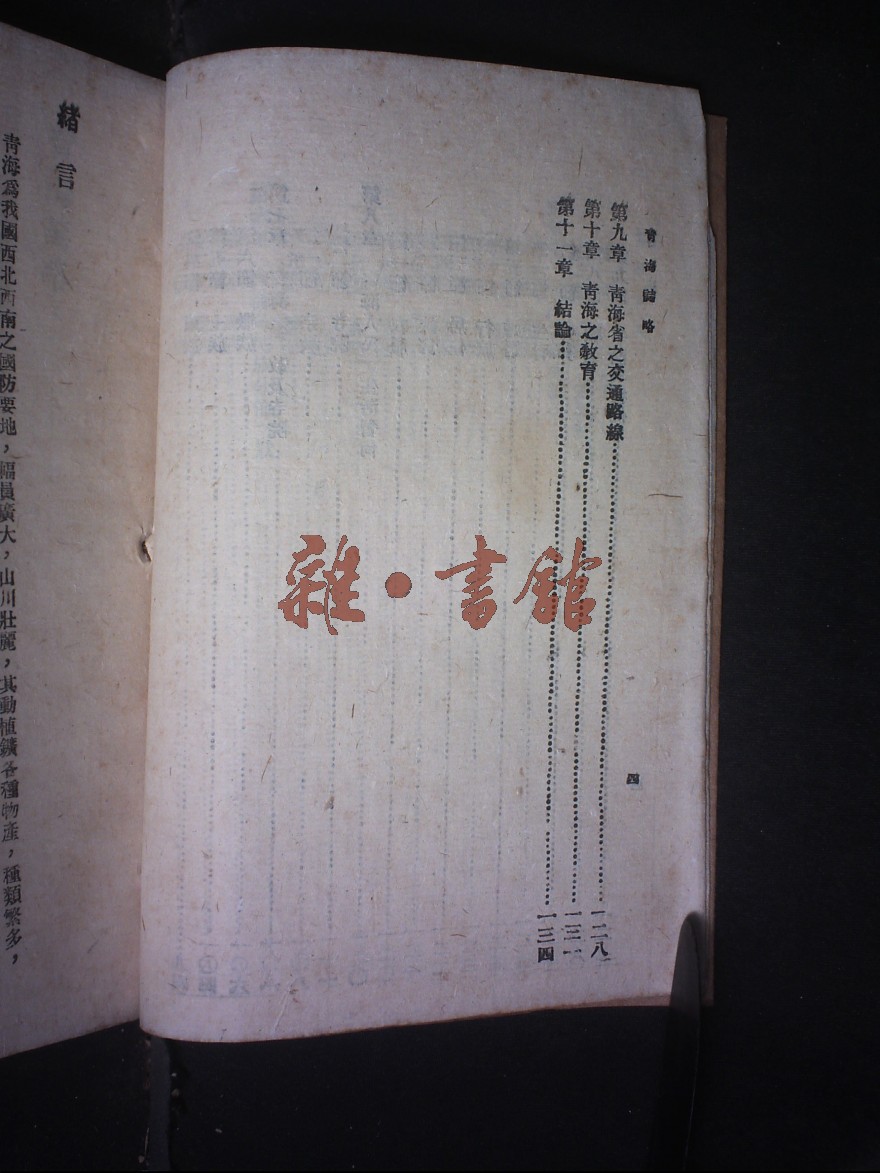 青海誌略
第九章 青海省之交通路線……一二八
第十章 青海之教育……一三一
第十一章 結論……一三四
四
緒言
青海為我國西北西南之國防要地，幅員廣大，山川壯麗，其動植鑛各種物產，種類繁多，
雜·書館